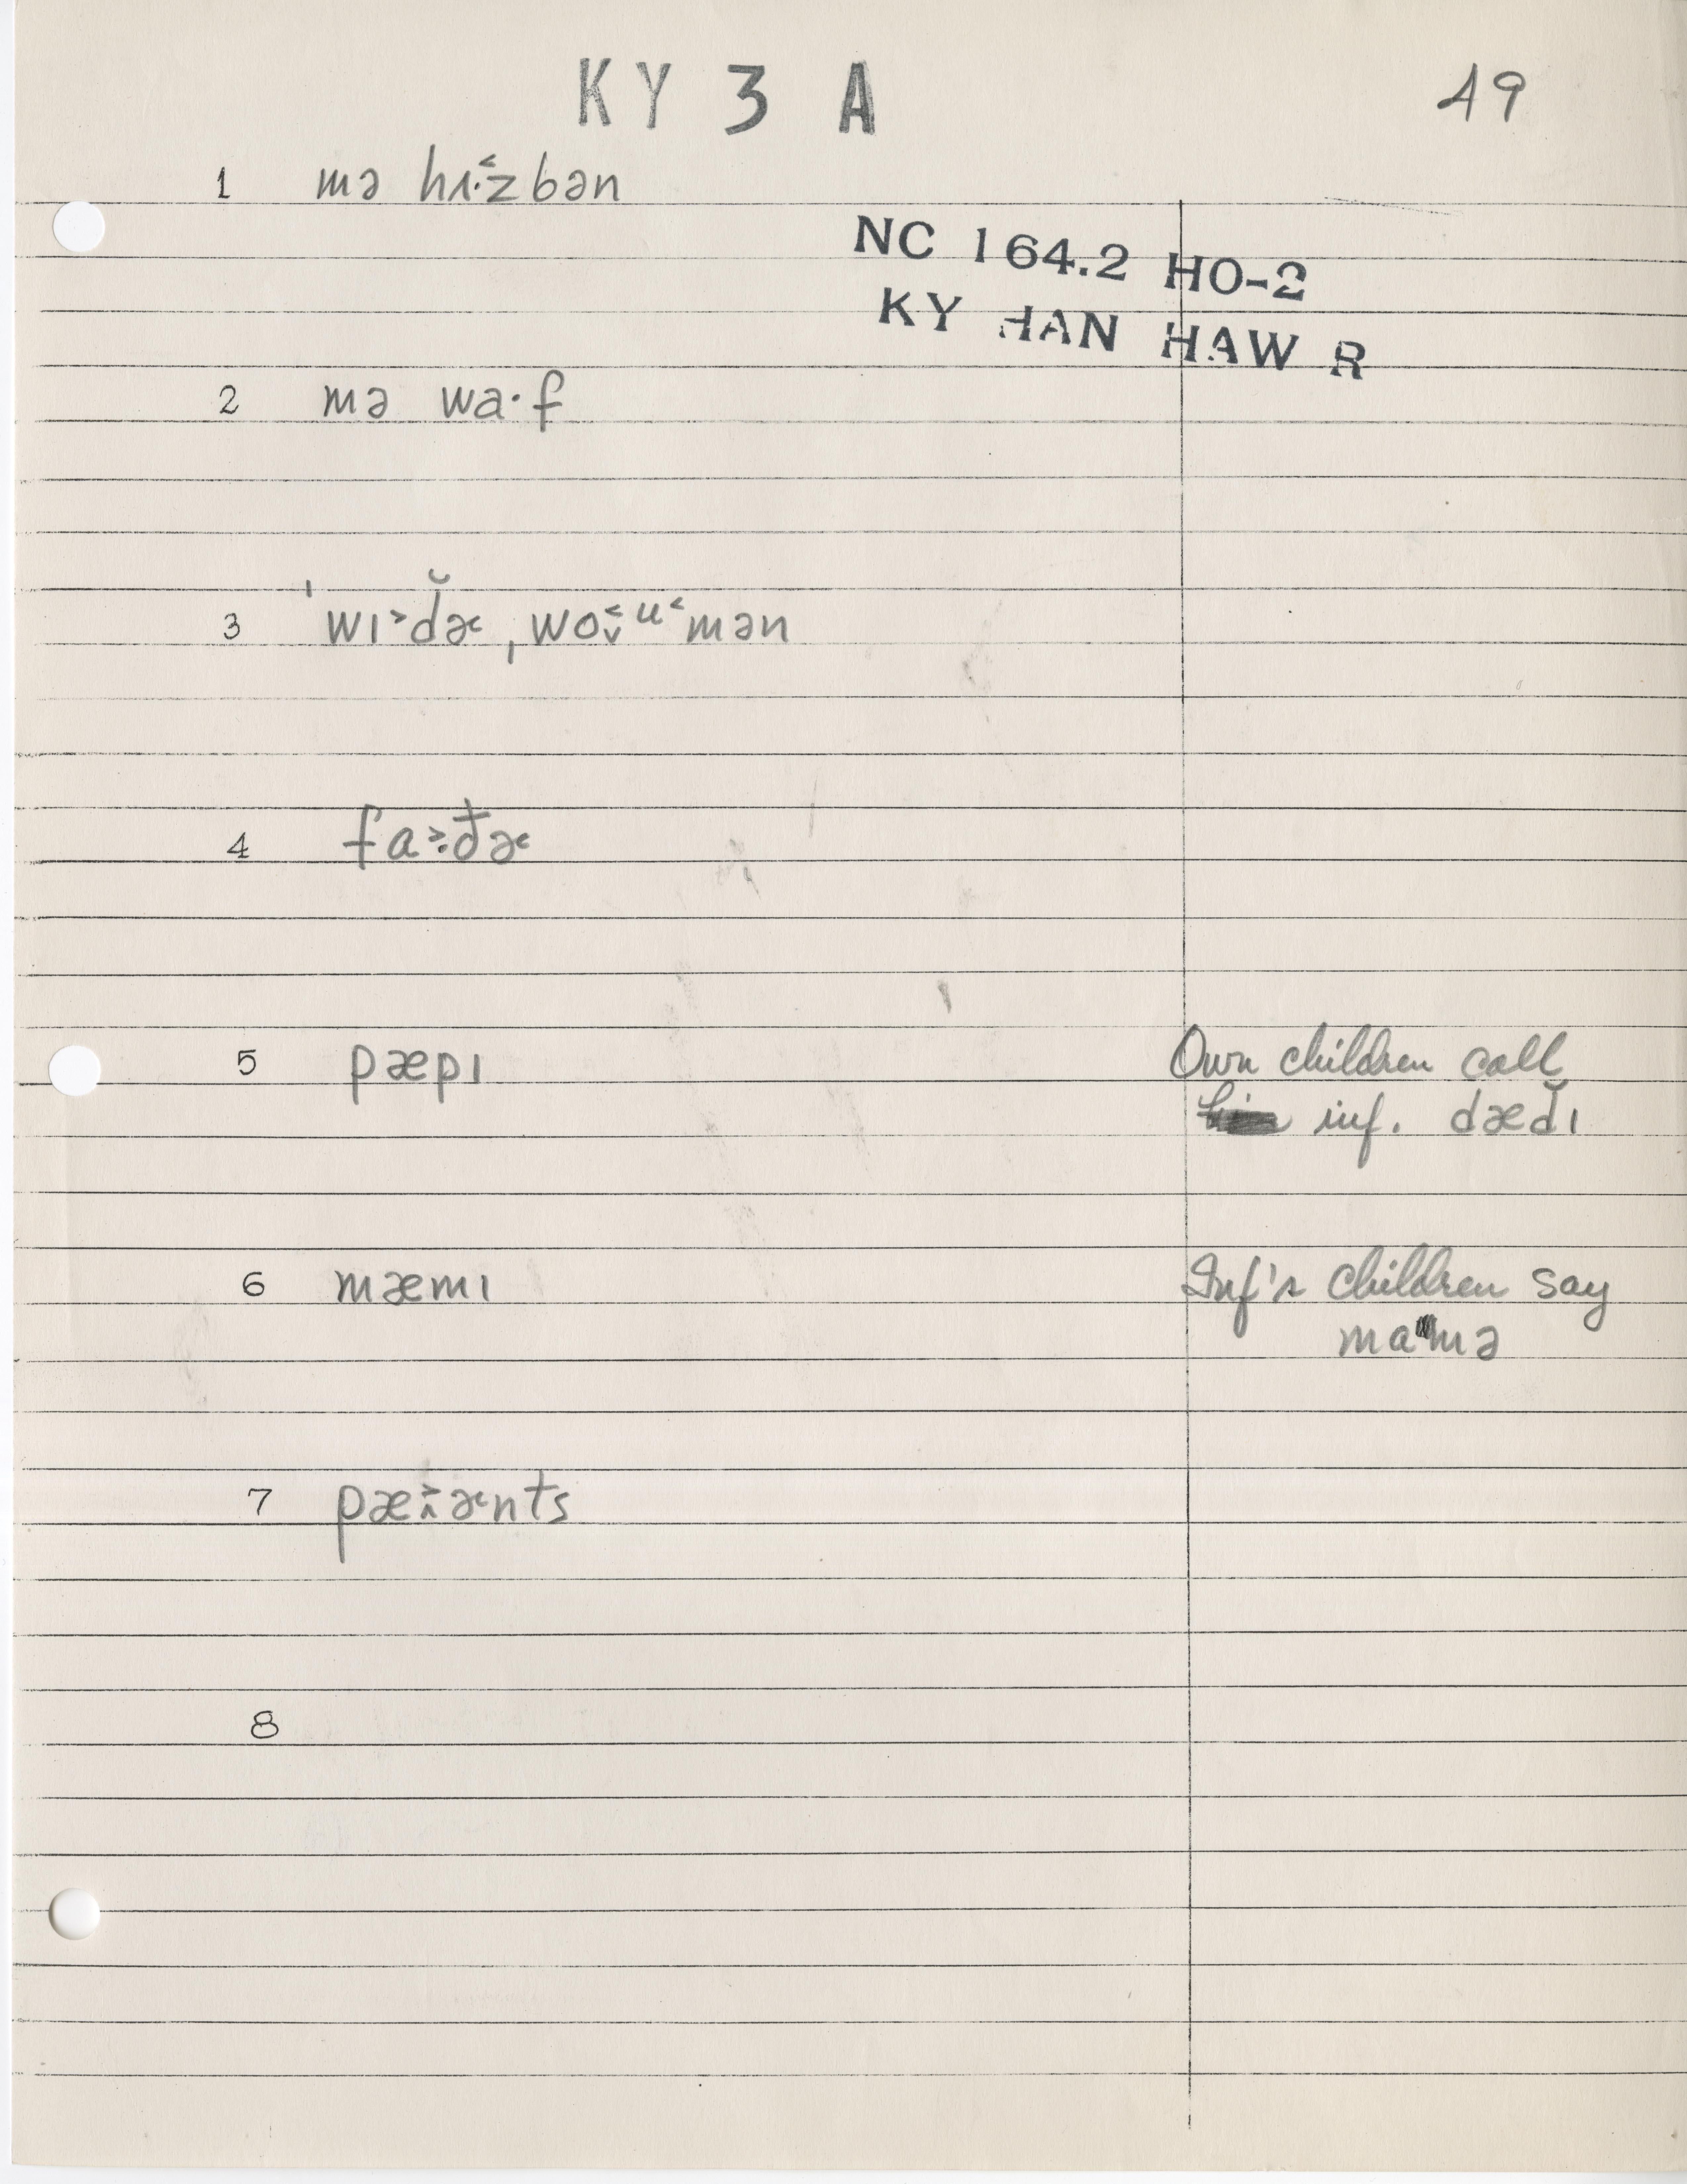 KY 3 A 49
1 mə hʌ·˂zbən
NC 164.2 HO-2
KY HAN HAW R
2 mə wa·f
3 ˈwɪ˃d̆ɚ ˌwo˂˅ᵘ˂mən
4 fa˃·đɚ
5 pæpɪ
Own children call
inf. dæd̆ɪ
6 mæmɪ
Inf's children say
mamə
7 pæ˃˄ɚnts
8